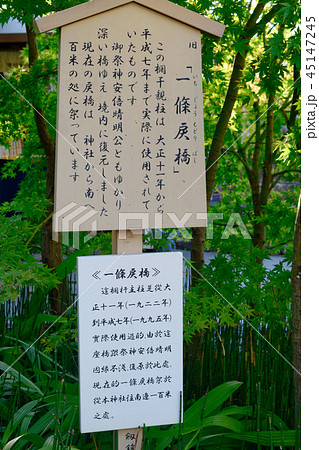 旧
「一條戻橋」
いちじょうもどりばし
この欄干親柱は、大正十一年から
平成七年まで実際に使用されて
いたものです
御祭神安倍晴明公ともゆかり
深い橋ゆえ、境内に復元しました
現在の戻橋は、神社から南
百米の処に架っています
《一條戾橋》
這欄杆主柱是從大
正十一年(一九二二年)
到平成七年(一九九五年)
實際使用過的,由於這
座橋跟祭神安倍晴明
因緣不淺,復原於此處。
現在的一條戾橋架於
從本神社往南邊一百米
之處。
PIXTA
pixta.jp - 45147245